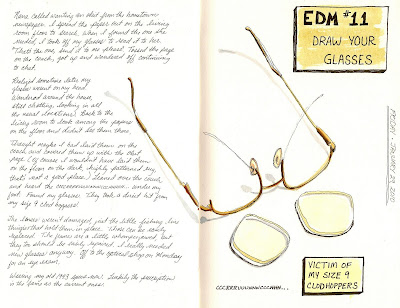 have called wanting an obit from the hometown
newspaper. I spread the paper out on the dining
room floor to search, when I found the one she
needed, I took off my glasses to read it to her.
"That's the one, send it to me please." Tossed the page
on the couch, got up and wandered off continuing
to chat.
Realized sometime later my
glasses weren't on my head.
Wandered around the house,
still chatting, looking in all
the usual locations. Back to the
dining room to look among the papers
on the floor and didn't see them there.
Thought maybe I had laid them on the
couch and covered them up with the obit
page. (Of course I wouldn't have laid them
on the floor on the dark, highly patterned rug,
that's not a good place.) Leaned over the couch
and heard the under my
foot. Found my glasses. They took a direct hit from
my size 9 clod hoppers!
The lenses weren't damaged, just the little fishing line
things that hold them in place. Those can be easily
replaced. The frames are a little whomperjawed but
they too should be easily repaired. I really needed
new glasses anyway. Off to the optical shop on Monday
for an eye exam.
Wearing my old 1993 specs now. Luckily the prescription
is the same as the current ones.
EDM #11
DRAW YOUR
GLASSES
VICTIM OF
MY SIZE 9
CLODHOPPERS